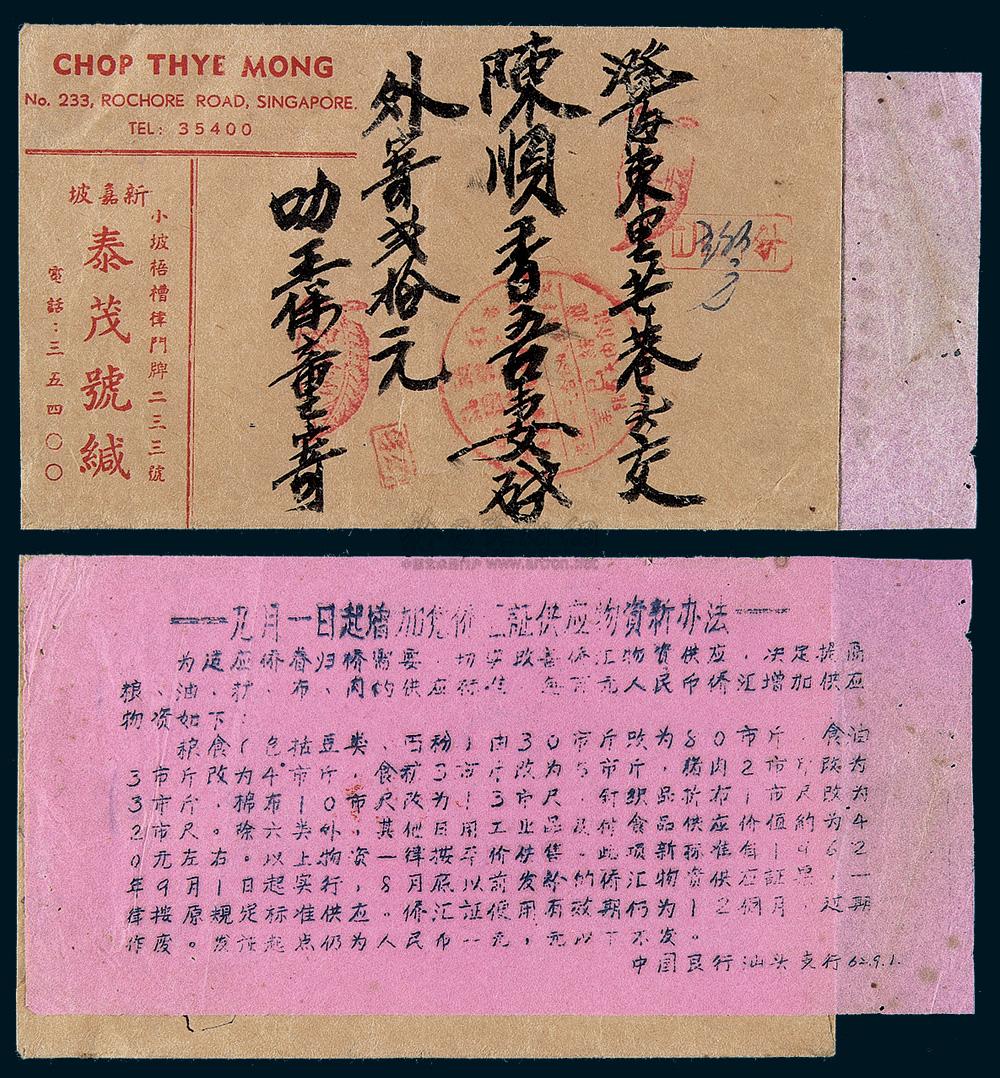 CHOP THYE MONG
No. 233, ROCHORE ROAD, SINGAPORE.
TEL: 35400
新嘉坡
小坡梧槽律門牌二三三號
泰茂號緘
電話:三五四〇〇
澄海東里
陳順香吾妻啟
外寄弍拾元
叻王保童寄
www.artron.net
——九月一日起增加兑侨汇証供应物资新办法——
为适应侨眷归侨需要,切实改善侨汇物资供应,决定提高
粮、油、糖、布、肉的供应标准,每百元人民币侨汇增加供应
物资如下:
粮食(包括豆类、面粉)由30市斤改为80市斤,食油
3市斤改为4市斤,食糖3市斤改为5市斤,猪肉2市斤改为
3市斤,棉布10市尺改为13市尺,针织品折布1市尺改为
2市尺。除六类外,其他日用工业品及付食品供应价值約为4
0元左右。以上物资一律按平价供售。此项新标准自1962
年9月1日起实行,8月底以前发給的侨汇物资供应証票,一
律按原規定标准供应。侨汇証使用有效期仍为12個月,过期
作废。发証起点仍为人民币一元,元以下不发。
中国艮行汕头支行62.9.1.